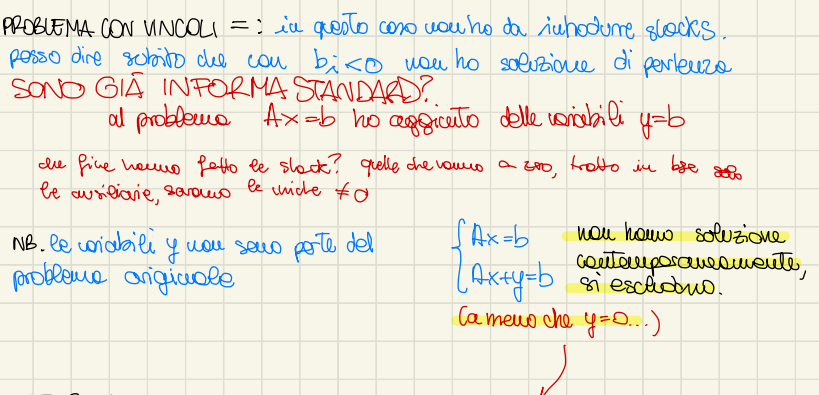 PROBLEMA CON VINCOLI = : in questo caso non ho da introdurre slacks.
posso dire subito che con bi<0 non ho soluzione di partenza
SONO GIÀ IN FORMA STANDARD?
al problema Ax=b ho aggiunto delle variabili y=b
che fine hanno fatto le slack? quelle che vanno a zero, tratto in base solo
le ausiliarie, saranno le uniche ≠0
NB. le variabili y non sono parte del
problema originale
{Ax=b
Ax+y=b
non hanno soluzione
contemporaneamente,
si escludono.
(a meno che y=0...)